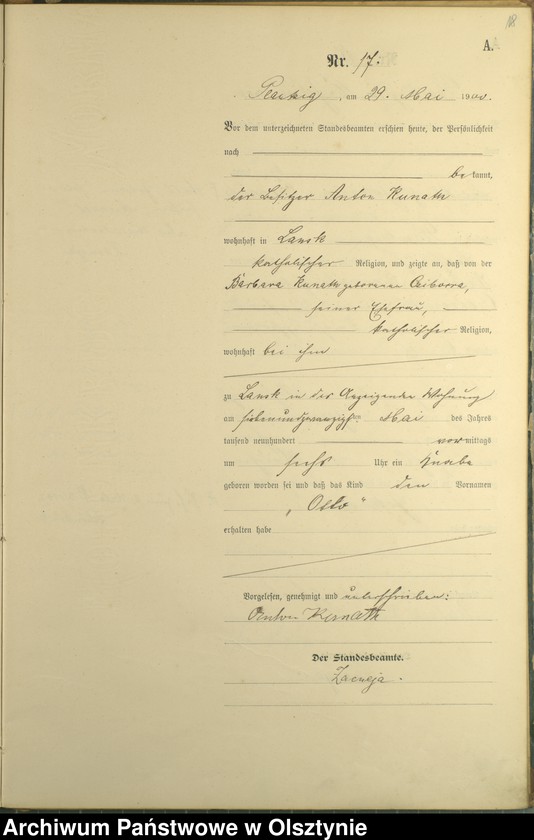 18
A.
Nr. 17.
am 29. Mai 1900.
Vor dem unterzeichneten Standesbeamten erschien heute, der Persönlichkeit
nach
be kannt,
der Besitzer Anton Kunath
wohnhaft in Lansk
katholischer Religion, und zeigte an, daß von der
Barbara Kunath geborenen
seiner Ehefrau,
katholischer Religion,
wohnhaft bei ihm
zu Lansk in des Anzeigenden Wohnung
am siebenundzwanzigsten Mai des Jahres
tausend neunhundert vor mittags
um sechs Uhr ein Knabe
geboren worden sei und daß das Kind den Vornamen
„Otto“
erhalten habe
Vorgelesen, genehmigt und unterschrieben:
Anton
Der Standesbeamte.
Archiwum Państwowe w Olsztynie